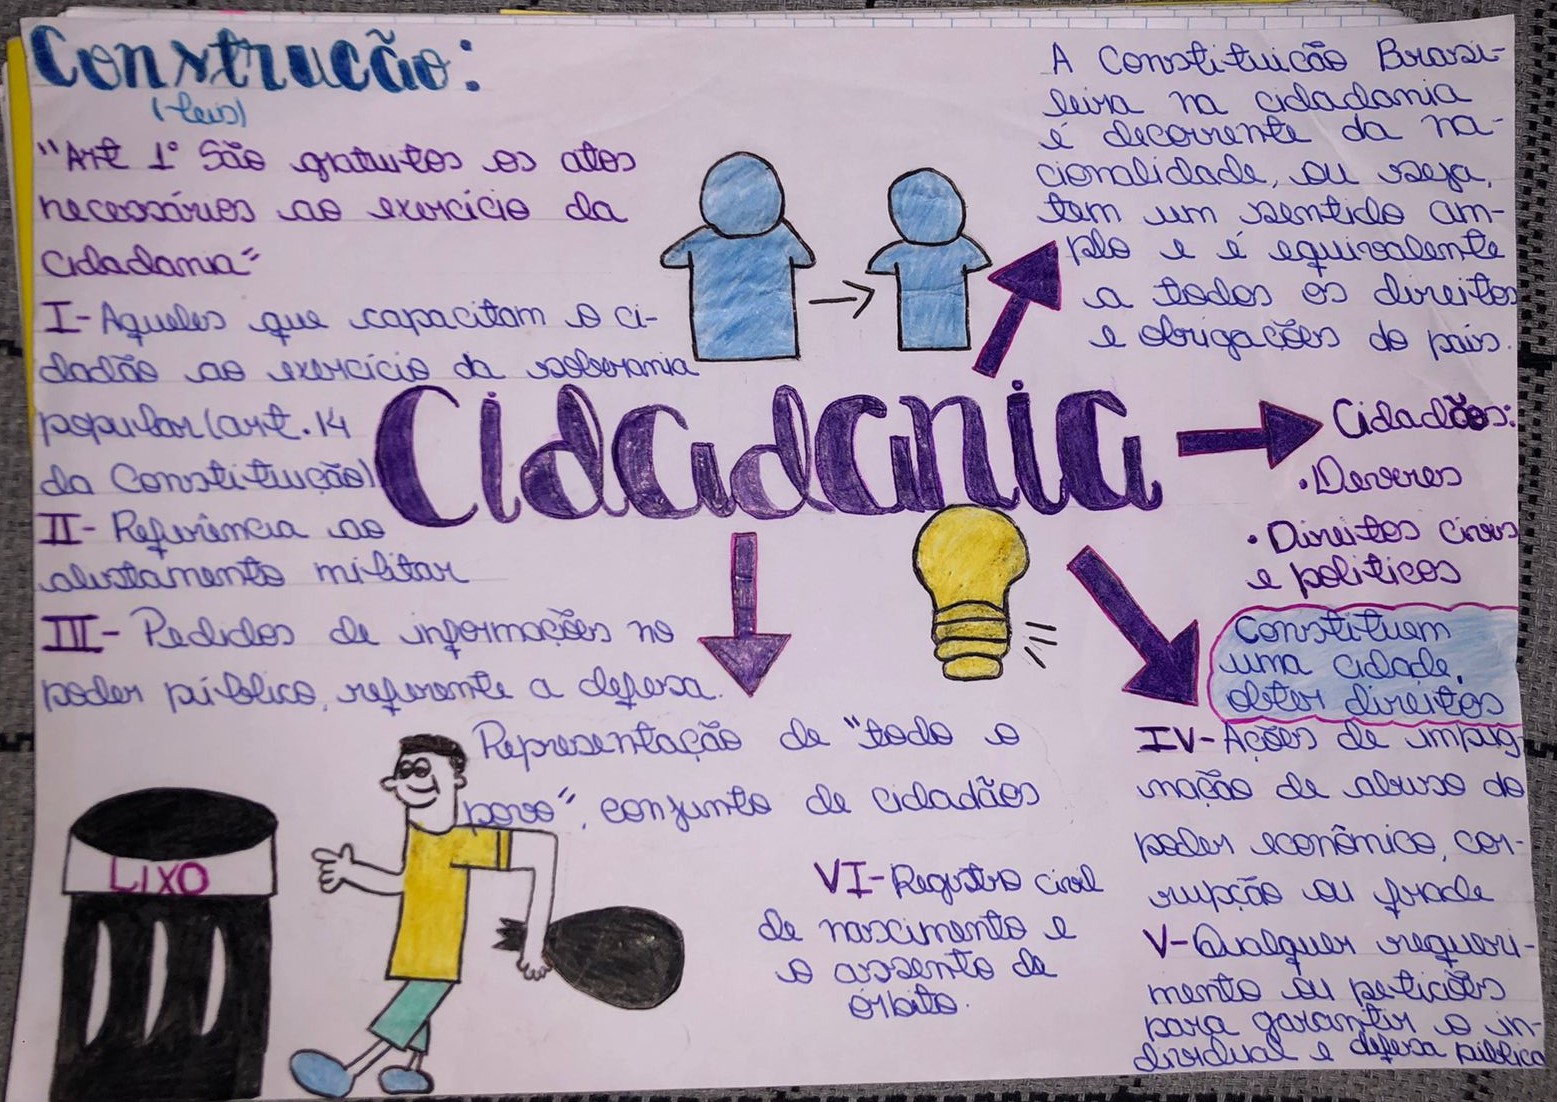 Construcão:
(leis)
"Art 1° São gratuitos os atos
necessários ao exercício da
cidadania"
I- Aqueles que capacitam o ci-
dadão ao exercício da soberania
popular (art. 14
da Constituição)
II- Referência ao
alistamento militar
III- Pedidos de informações no
poder público, referente a defesa.
Cidadania
A Constituicão Brasi-
leira na cidadania
é decorrente da na-
cionalidade, ou seja,
tem um sentido am-
plo e é equivalente
a todos os direitos
e obrigações do país.
Cidadãos:
• Deveres
• Direitos civis
e politicos
Constituem
uma cidade,
obter direitos
Representação de "todo o
povo", conjunto de cidadãos
IV- Ações de impug
nação de abuso do
poder econômico, cor-
rupção ou fraude
V- Qualquer requeri-
mento ou petições
para garantir o in-
dividual e defesa pública
VI- Registro civil
de nascimento e
o assento de
órbito.
LIXO